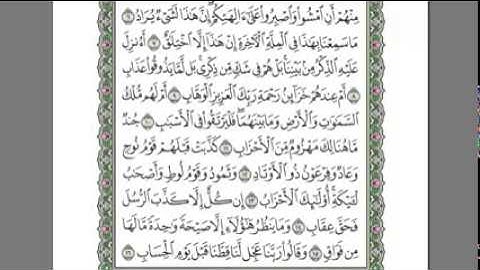 مِنْهُمْ أَنِ امْشُوا وَاصْبِرُوا عَلَىٰ آلِهَتِكُمْ إِنَّ هَٰذَا لَشَيْءٌ يُرَادُ ٦
مَا سَمِعْنَا بِهَٰذَا فِي الْمِلَّةِ الْآخِرَةِ إِنْ هَٰذَا إِلَّا اخْتِلَاقٌ ٧ أَءُنزِلَ
عَلَيْهِ الذِّكْرُ مِن بَيْنِنَا بَلْ هُمْ فِي شَكٍّ مِّن ذِكْرِي بَل لَّمَّا يَذُوقُوا عَذَابِ
٨ أَمْ عِندَهُمْ خَزَائِنُ رَحْمَةِ رَبِّكَ الْعَزِيزِ الْوَهَّابِ ٩ أَمْ لَهُم مُّلْكُ
السَّمَاوَاتِ وَالْأَرْضِ وَمَا بَيْنَهُمَا فَلْيَرْتَقُوا فِي الْأَسْبَابِ ١٠ جُندٌ
مَّا هُنَالِكَ مَهْزُومٌ مِّنَ الْأَحْزَابِ ١١ كَذَّبَتْ قَبْلَهُمْ قَوْمُ نُوحٍ
وَعَادٌ وَفِرْعَوْنُ ذُو الْأَوْتَادِ ١٢ وَثَمُودُ وَقَوْمُ لُوطٍ وَأَصْحَابُ
لْـَٔيْكَةِ أُولَٰئِكَ الْأَحْزَابُ ١٣ إِن كُلٌّ إِلَّا كَذَّبَ الرُّسُلَ
فَحَقَّ عِقَابِ ١٤ وَمَا يَنظُرُ هَٰؤُلَاءِ إِلَّا صَيْحَةً وَاحِدَةً مَّا لَهَا
مِن فَوَاقٍ ١٥ وَقَالُوا رَبَّنَا عَجِّل لَّنَا قِطَّنَا قَبْلَ يَوْمِ الْحِسَابِ ١٦